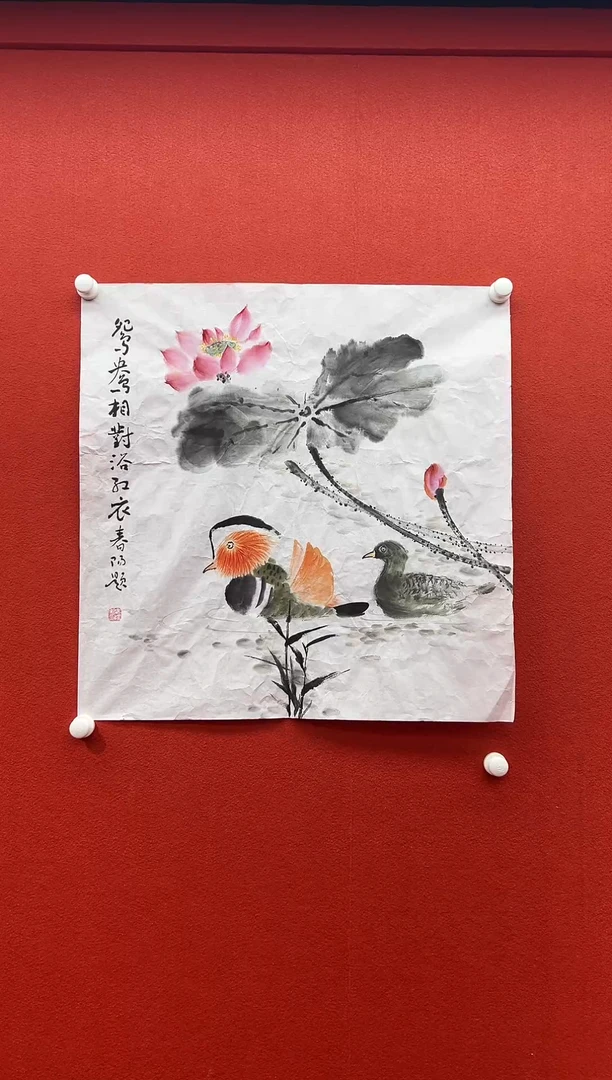 鸳鸯相對浴红衣春阳题